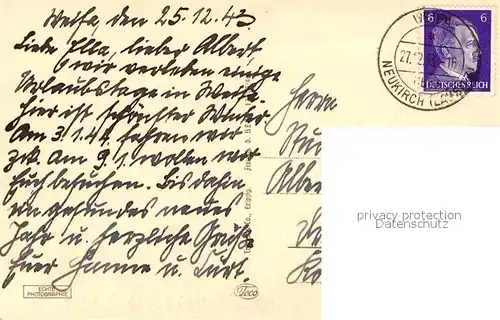 Weifa, den 25.12.43
Liebe Ella, lieber Albert,
wir verleben einige
Urlaubstage in Weifa.
Hier ist schönster Winter.
Am 3.1.44 fahren wir
zck. Am 9.1. wollen wir
Euch besuchen. Bis dahin
ein gesundes neues
Jahr u. herzliche Grüße
Euer Hanne u. Kurt.
ECHTE
PHOTOGRAPHIE
Co., Leipzig
Teco
Herrn
Albe
6 6
DEUTSCHES REICH
27.12.43
NEUKIRCH (LAUS
privacy protection
Datenschutz